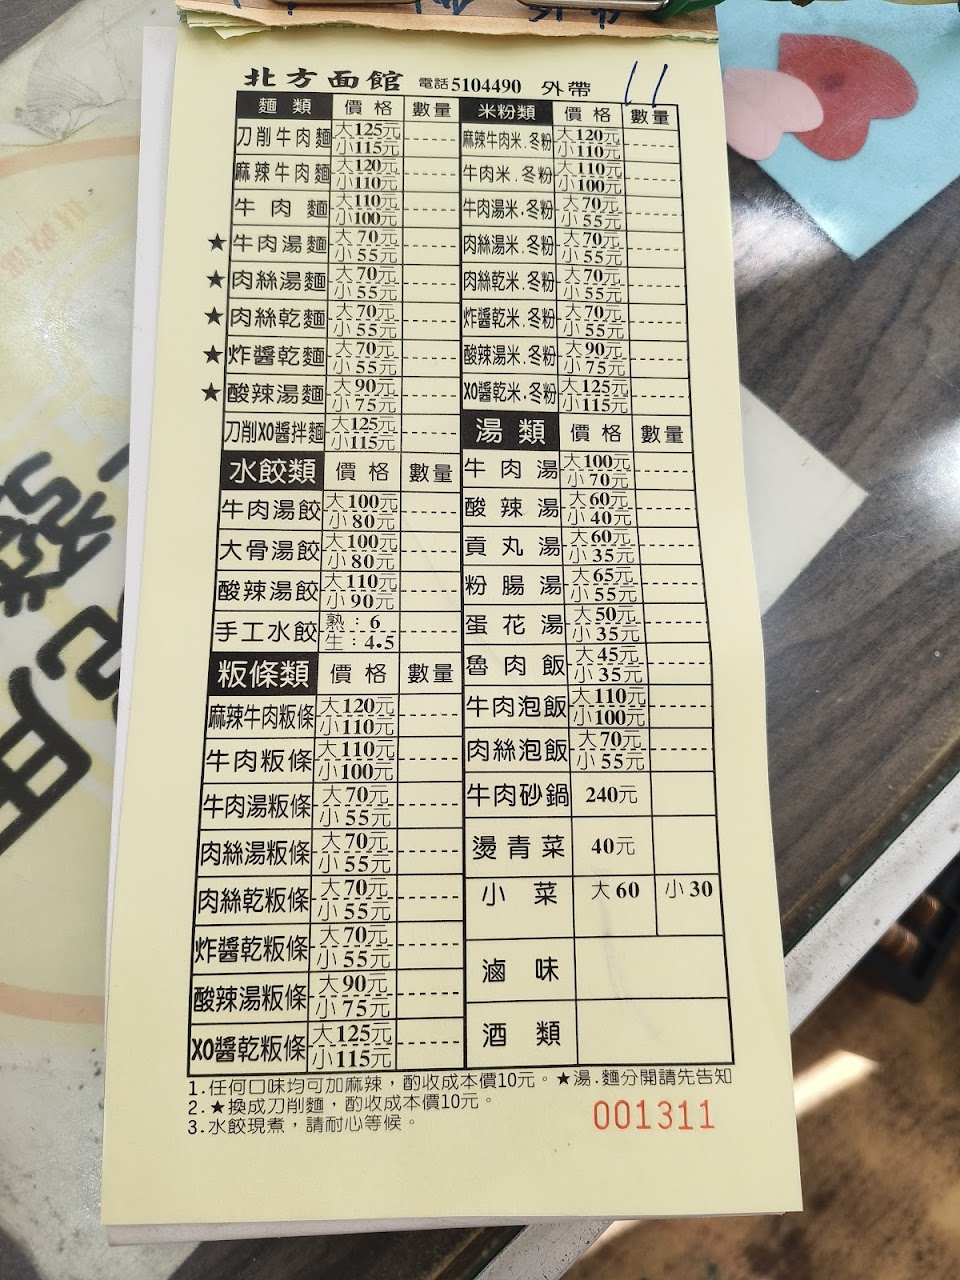 北方面館 電話5104490 外帶 11
麵類 價格 數量
刀削牛肉麵 大125元 小115元
麻辣牛肉麵 大120元 小110元
牛肉麵 大110元 小100元
★牛肉湯麵 大70元 小55元
★肉絲湯麵 大70元 小55元
★肉絲乾麵 大70元 小55元
★炸醬乾麵 大70元 小55元
★酸辣湯麵 大90元 小75元
刀削XO醬拌麵 大125元 小115元
水餃類 價格 數量
牛肉湯餃 大100元 小80元
大骨湯餃 大100元 小80元
酸辣湯餃 大110元 小90元
手工水餃 熟：6 生：4.5
粄條類 價格 數量
麻辣牛肉粄條 大120元 小110元
牛肉粄條 大110元 小100元
牛肉湯粄條 大70元 小55元
肉絲湯粄條 大70元 小55元
肉絲乾粄條 大70元 小55元
炸醬乾粄條 大70元 小55元
酸辣湯粄條 大90元 小75元
XO醬乾粄條 大125元 小115元
米粉類 價格 數量
麻辣牛肉米.冬粉 大120元 小110元
牛肉米.冬粉 大110元 小100元
牛肉湯米.冬粉 大70元 小55元
肉絲湯米.冬粉 大70元 小55元
肉絲乾米.冬粉 大70元 小55元
炸醬乾米.冬粉 大70元 小55元
酸辣湯米.冬粉 大90元 小75元
XO醬乾米.冬粉 大125元 小115元
湯類 價格 數量
牛肉湯 大100元 小70元
酸辣湯 大60元 小40元
貢丸湯 大60元 小35元
粉腸湯 大65元 小55元
蛋花湯 大50元 小35元
魯肉飯 大45元 小35元
牛肉泡飯 大110元 小100元
肉絲泡飯 大70元 小55元
牛肉砂鍋 240元
燙青菜 40元
小菜 大60 小30
滷味
酒類
1.任何口味均可加麻辣，酌收成本價10元。★湯.麵分開請先告知
2.★換成刀削麵，酌收成本價10元。
3.水餃現煮，請耐心等候。
001311